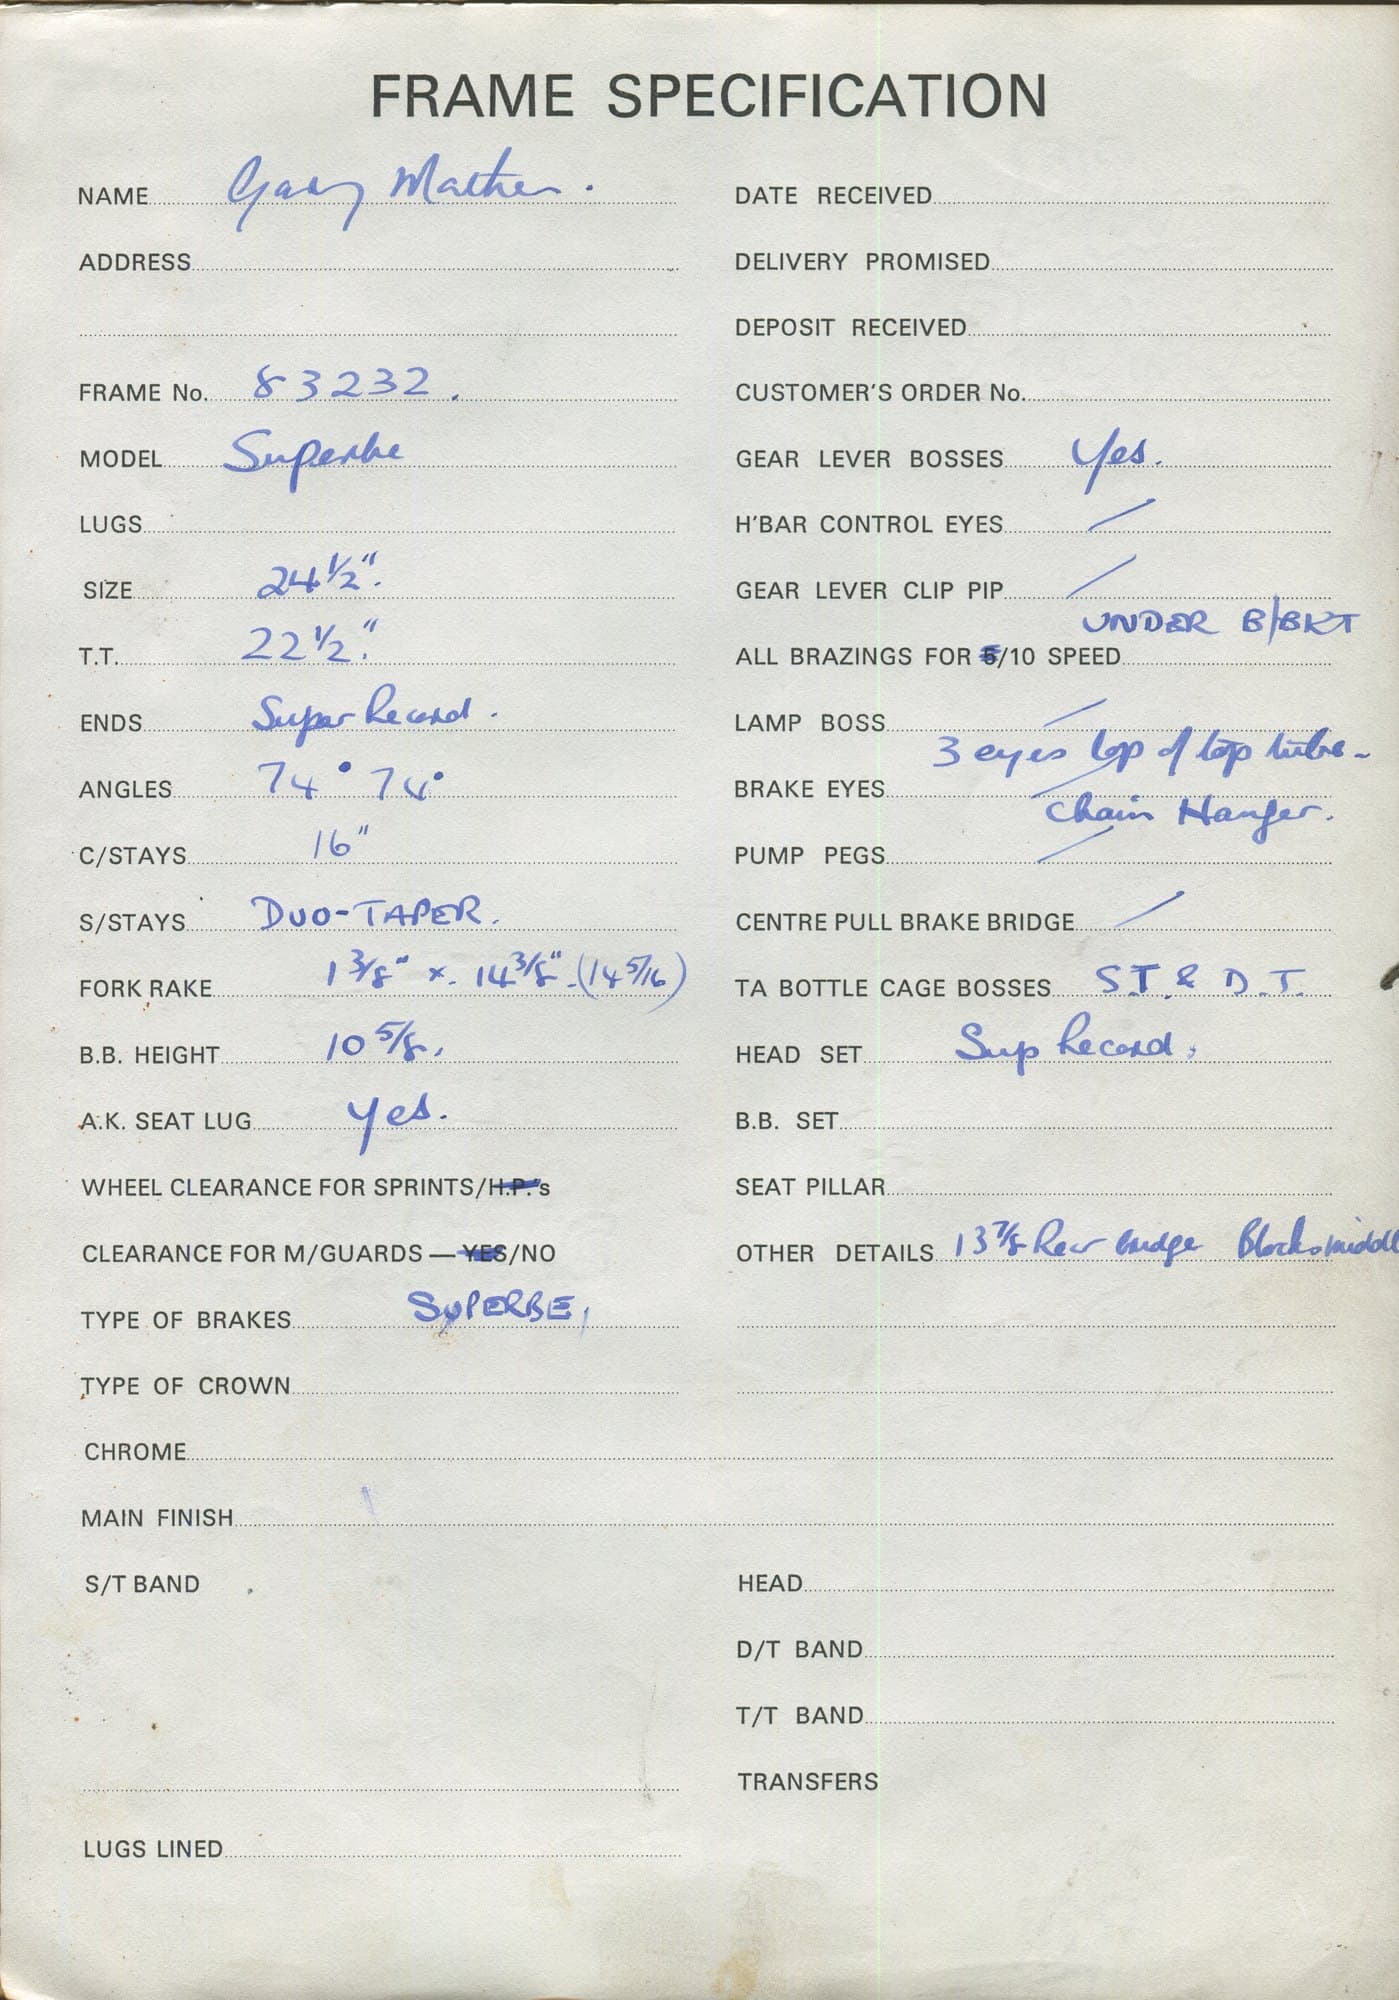 FRAME SPECIFICATION
NAME Gary Mather.
ADDRESS
FRAME No. 83232.
MODEL Superbe
LUGS
SIZE 24 1/2".
T.T. 22 1/2".
ENDS Super Record.
ANGLES 74° 74°
C/STAYS 16"
S/STAYS DUO-TAPER.
FORK RAKE 1 3/8" x 14 3/8". (14 5/16)
B.B. HEIGHT 10 5/8.
A.K. SEAT LUG Yes.
WHEEL CLEARANCE FOR SPRINTS/H.P.'s
CLEARANCE FOR M/GUARDS — YES/NO
TYPE OF BRAKES SUPERBE,
TYPE OF CROWN
DATE RECEIVED
DELIVERY PROMISED
DEPOSIT RECEIVED
CUSTOMER'S ORDER No.
GEAR LEVER BOSSES Yes.
H'BAR CONTROL EYES /
GEAR LEVER CLIP PIP /
UNDER B/BKT
ALL BRAZINGS FOR 5/10 SPEED
LAMP BOSS /
3 eyes top of top tube-
BRAKE EYES /
Chain Hanger.
PUMP PEGS /
CENTRE PULL BRAKE BRIDGE /
TA BOTTLE CAGE BOSSES S.T. & D.T.
HEAD SET Sup Record.
B.B. SET
SEAT PILLAR
OTHER DETAILS 13 7/8 Rear bridge Blocks middl
CHROME
MAIN FINISH
S/T BAND
LUGS LINED
HEAD
D/T BAND
T/T BAND
TRANSFERS